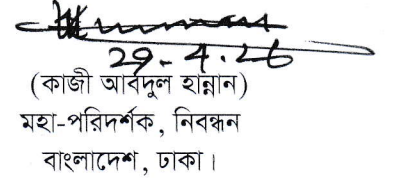 29-4.26
(কাজী আবদুল হান্নান)
মহা-পরিদর্শক, নিবন্ধন
বাংলাদেশ, ঢাকা।